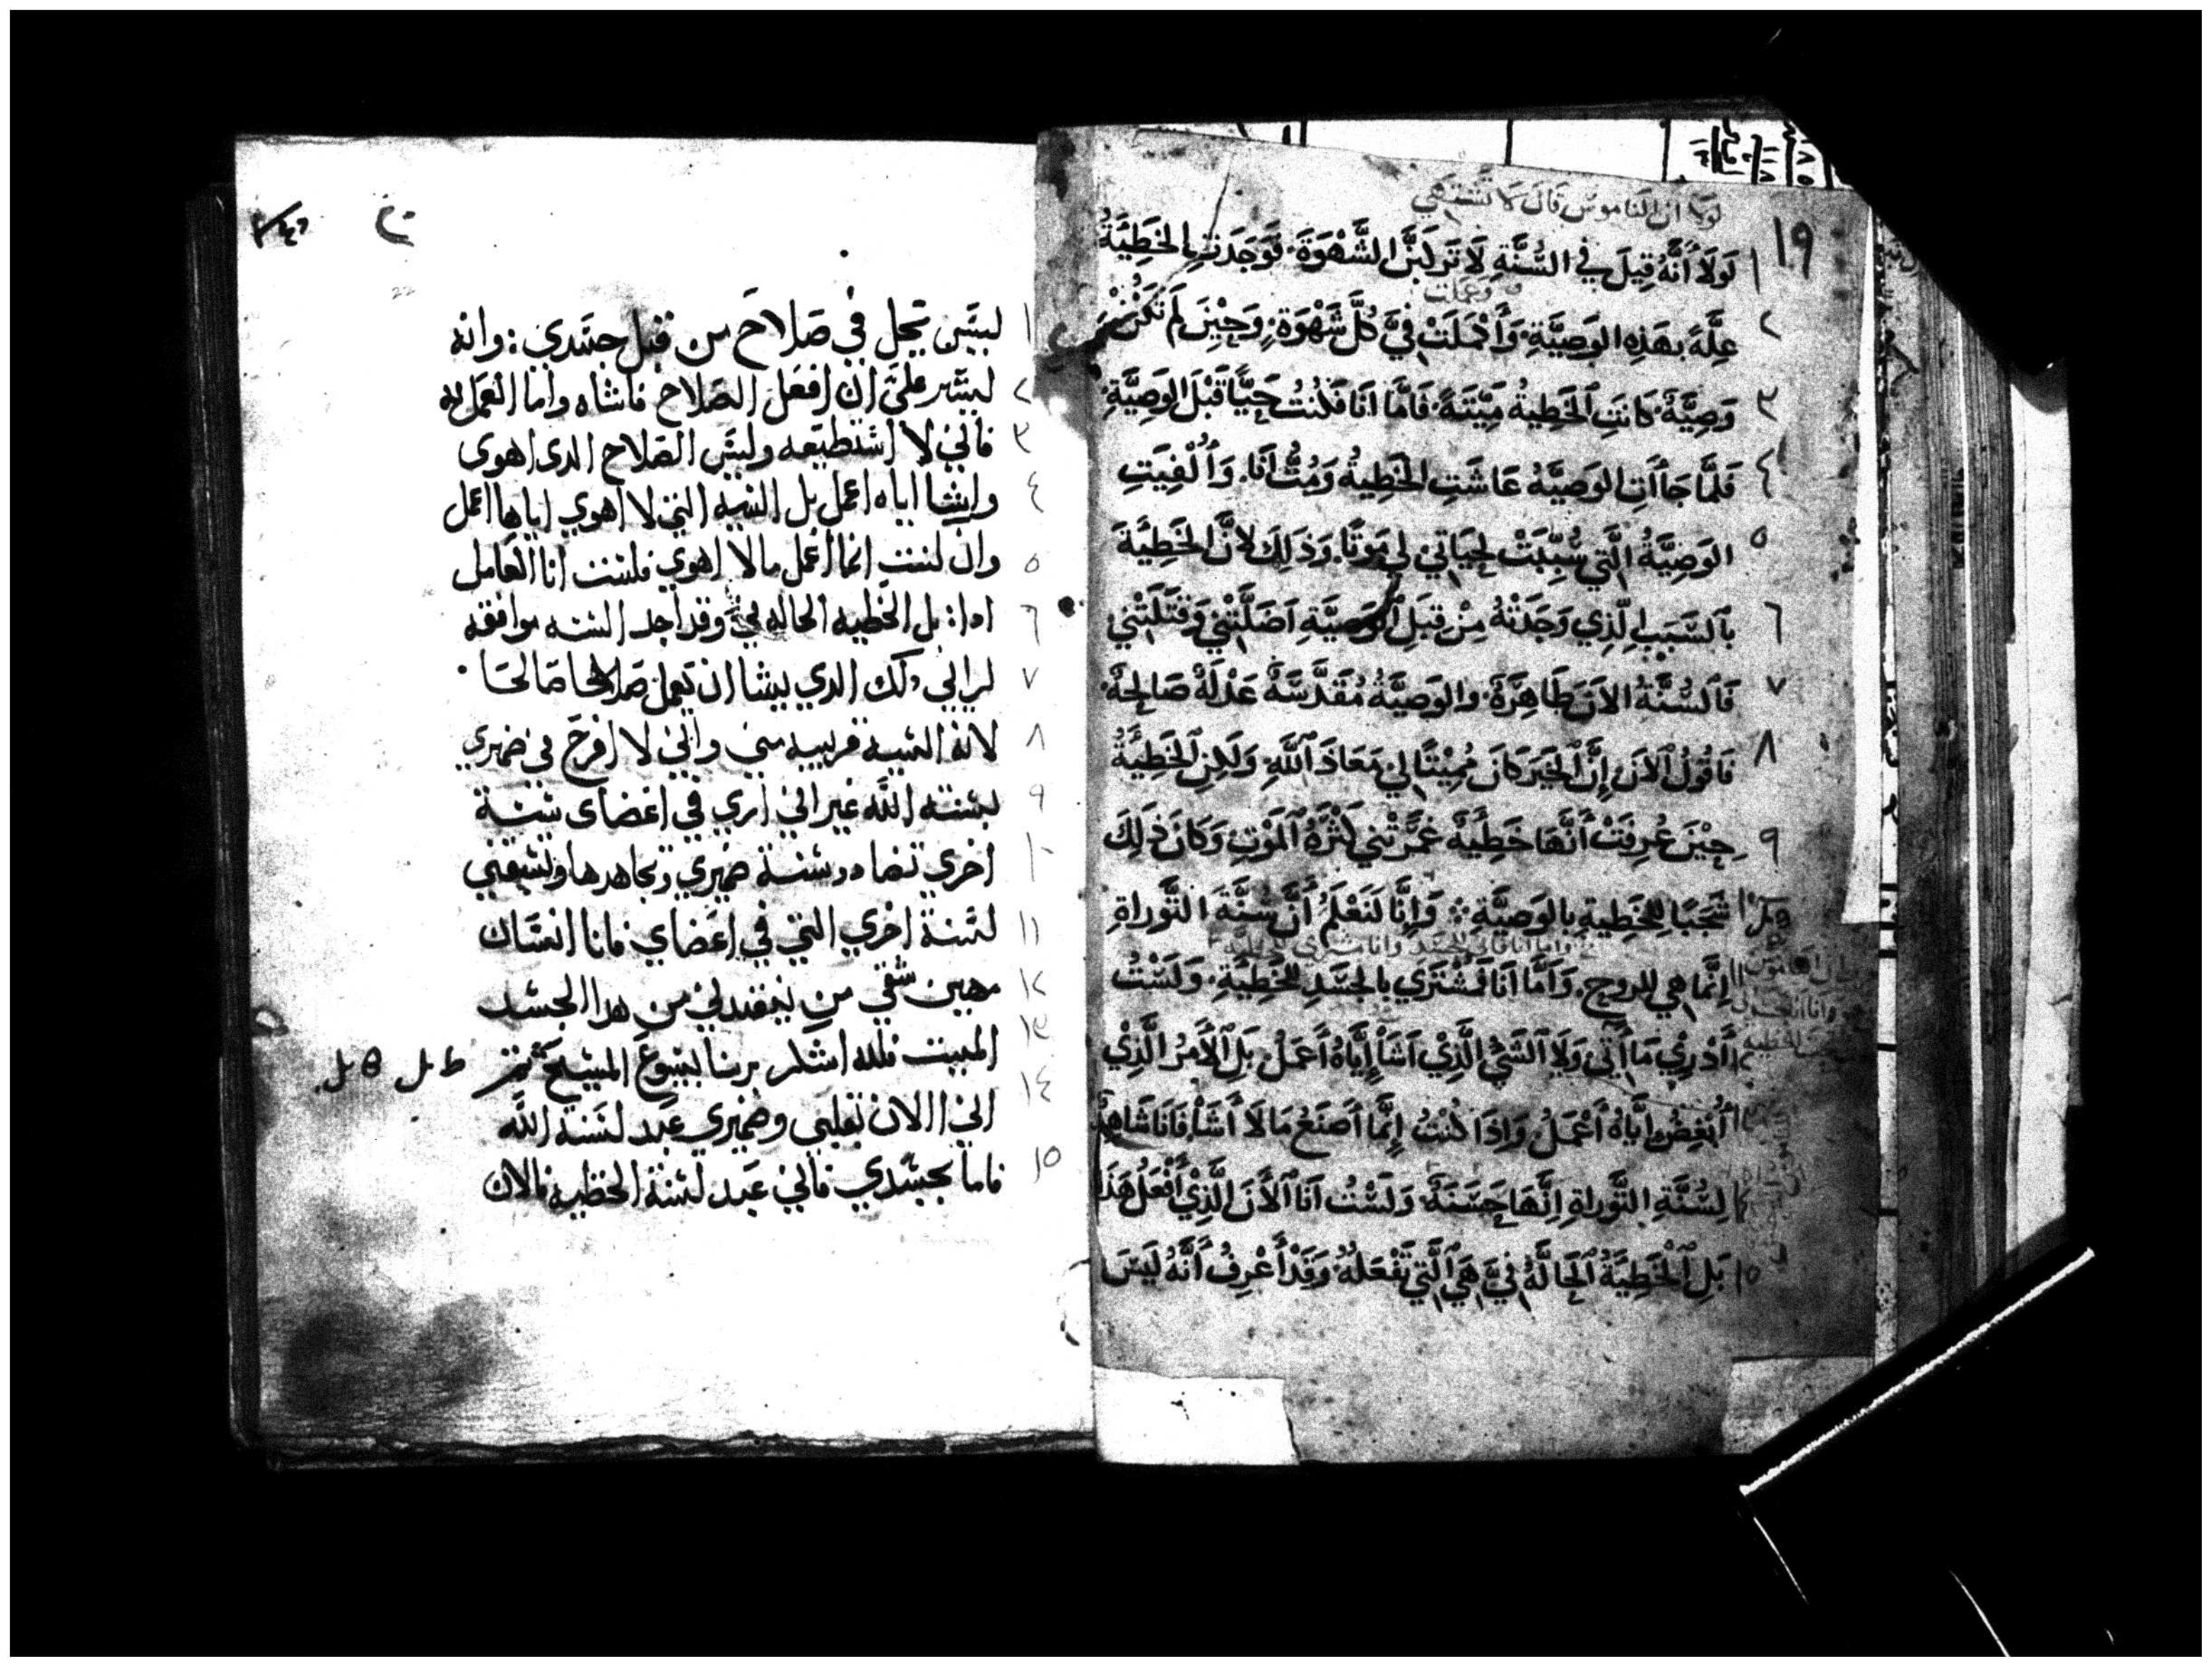 لولا ان الناموس قال لا تشتهي
١٩
١ لَولَا أَنَّهُ قِيلَ في السُّنَّةِ لَا تَركَبَنَّ الشَّهْوَةَ. فَوَجَدَتِ الخَطِيَّةُ
وعملت
٢ عِلَّةً بهَذِهِ الوَصِيَّةِ. وَأَكمَلَتْ فِيَّ كُلَّ شَهْوَةٍ. وَحِيْنَ لَم تَكُنْ
٣ وَصِيَّةٌ. كَانَتِ الخَطِيةُ مَيْتَةً. فَامَّا انَا فَكُنتُ حَيًّا قَبْلَ الوَصِيَّةِ.
٤ فَلَمَّا جَاأَتِ الوَصِيَّةُ عَاشَتِ الخَطِيةُ وَمُتُّ انَا. وَأُلْفِيَتِ
٥ الوَصِيَّةُ الَّتِي سُبِّبَتْ لِحَيَاتِي لِي مَوتًا. وَذَلِكَ لانَّ الخَطِيَّةَ
٦ بِالسَّبَبِ الَّذِي وَجَدَتْهُ مِنْ قِبَلِ الوَصِيَّةِ اَضَلَّتْنِي وَقَتَلَتْنِي
٧ فَالسُّنَّةُ الاَنَ طَاهِرَةٌ. والوَصِيَّةُ مُقَدَّسَةٌ عَدْلَةٌ صَالِحَةٌ.
٨ فَاقُولُ الاَنَ إِنَّ الخَيرَ كَانَ مُمِيْتًا لِي مَعَاذَ اللَّهِ. وَلَكِنِ الخَطِيَّةُ
٩ حِيْنَ عُرِفَتْ أَنَّهَا خَطِيَّةٌ غَمَّرَتْنِي كَثْرَةُ المَوْتِ وَكَانَ ذَلِكَ
شَجَبًا لِلخَطِيةِ بِالوَصِيَّةِ ⁘ وَإِنَّا لَنَعْلَمُ أَنَّ سُنَّةَ التَّوراةِ
١١ اِنَّمَا هِي لِلروحِ. وَأَمَّا أَنَا فَمُشْتَرَي بِالجَسَدِ لِلخَطِيَّةِ. وَلَسْتُ
أَدْرِيْ مَا أَتِي وَلَا الشَّيَّ الَّذِيْ اَشَأْ إِيَّاهُ أَعمَلُ بَلِ الأَمرُ الَّذِيْ
أُبْغِضُ إِيَّاهُ أَعْمَلُ وَاِذَا كُنْتُ إِنَّمَا أَصنَعُ مَا لَا أَشَأْ فَانَا شَاهِدٌ
لِسُنَّةِ التَّوراةِ إِنَّهَا حَسَنَةٌ. وَلَسْتُ اَنَا الأَنَ الَّذِيْ أَفْعَلُ هَذَا
١٥ بَلِ الخَطِيَّةُ الحَالَّةُ فِيَّ هِيَ الَّتِي تَفْعَلُهُ وَقَدْ أَعْرِفُ أَنَّهُ لَيسَ
22
١ ليس يحل في صلاح من قبل جسدي: وانه
٢ ليسر علي ان افعل الصلاح فاشاه واما العمل به
٣ فاني لا استطيعه وليس الصلاح الدي اهوي
٤ وايشا اياه اعمل بل السيه التي لا اهوي اياها اعمل
٥ وان كنت انما اعمل ما لا اهوي فلست انا العامل
٦ ادا: بل الخطيه الحاله في وقد اجد السنه موافقه
٧ لرايي دلك الدي يشا ان يعمل صلاحا صالحا
٨ لانه السية قريبه مني واني لا افرح في ضميري
٩ بسنه الله غير اني اري في اعضاي سنة
١٠ اخري تضادد سنة ضميري وتجاهدها وتسبيني
١١ لسنة اخري التي في اعضاي فانا انسان
١٢ مهين شقي من ينقدني من هدا الجسد
١٣ الميت فلله اشكر بربنا يسوع المسيح
١٤ اني الان بقلبي وضميري عبد لسنة الله
١٥ فاما بجسدي فاني عبد لسنة الخطيه فالان